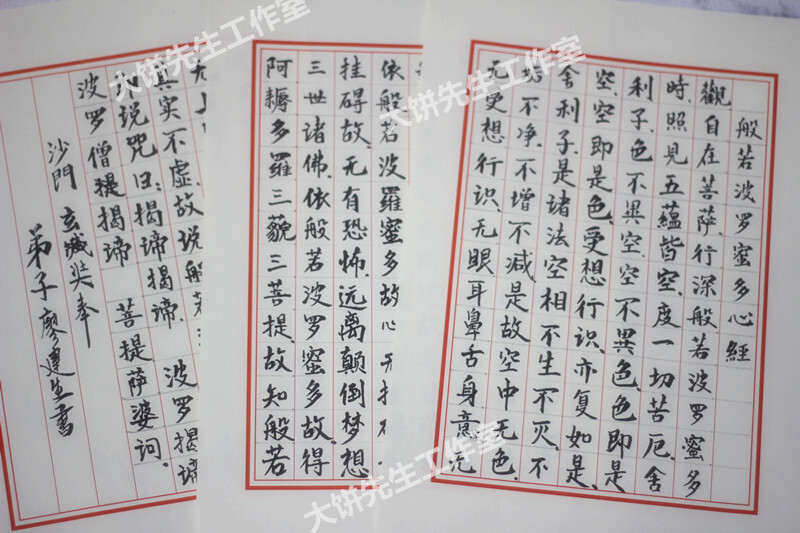 般若波罗蜜多心經
觀自在菩萨,行深般若波罗蜜多
時,照見五蕴皆空,度一切苦厄,舍
利子,色不異空,空不異色,色即是
空,空即是色,受想行识,亦复如是,
舍利子,是诸法空相,不生不灭,不
垢不净,不增不减,是故空中无色,
无受想行识,无眼耳鼻舌身意,无
依般若波羅蜜多故,心无挂
挂碍故,无有恐怖,远离颠倒梦想
三世诸佛,依般若波罗蜜多故,得
阿耨多羅三藐三菩提,故知般若
真实不虚,故说般若
说咒曰:揭谛揭谛 波罗揭谛
波罗僧揭谛 菩提萨婆诃,
沙門 玄奘奉
弟子廖建生書
大饼先生工作室
大饼先生工作室
大饼先生工作室
大饼先生工作室